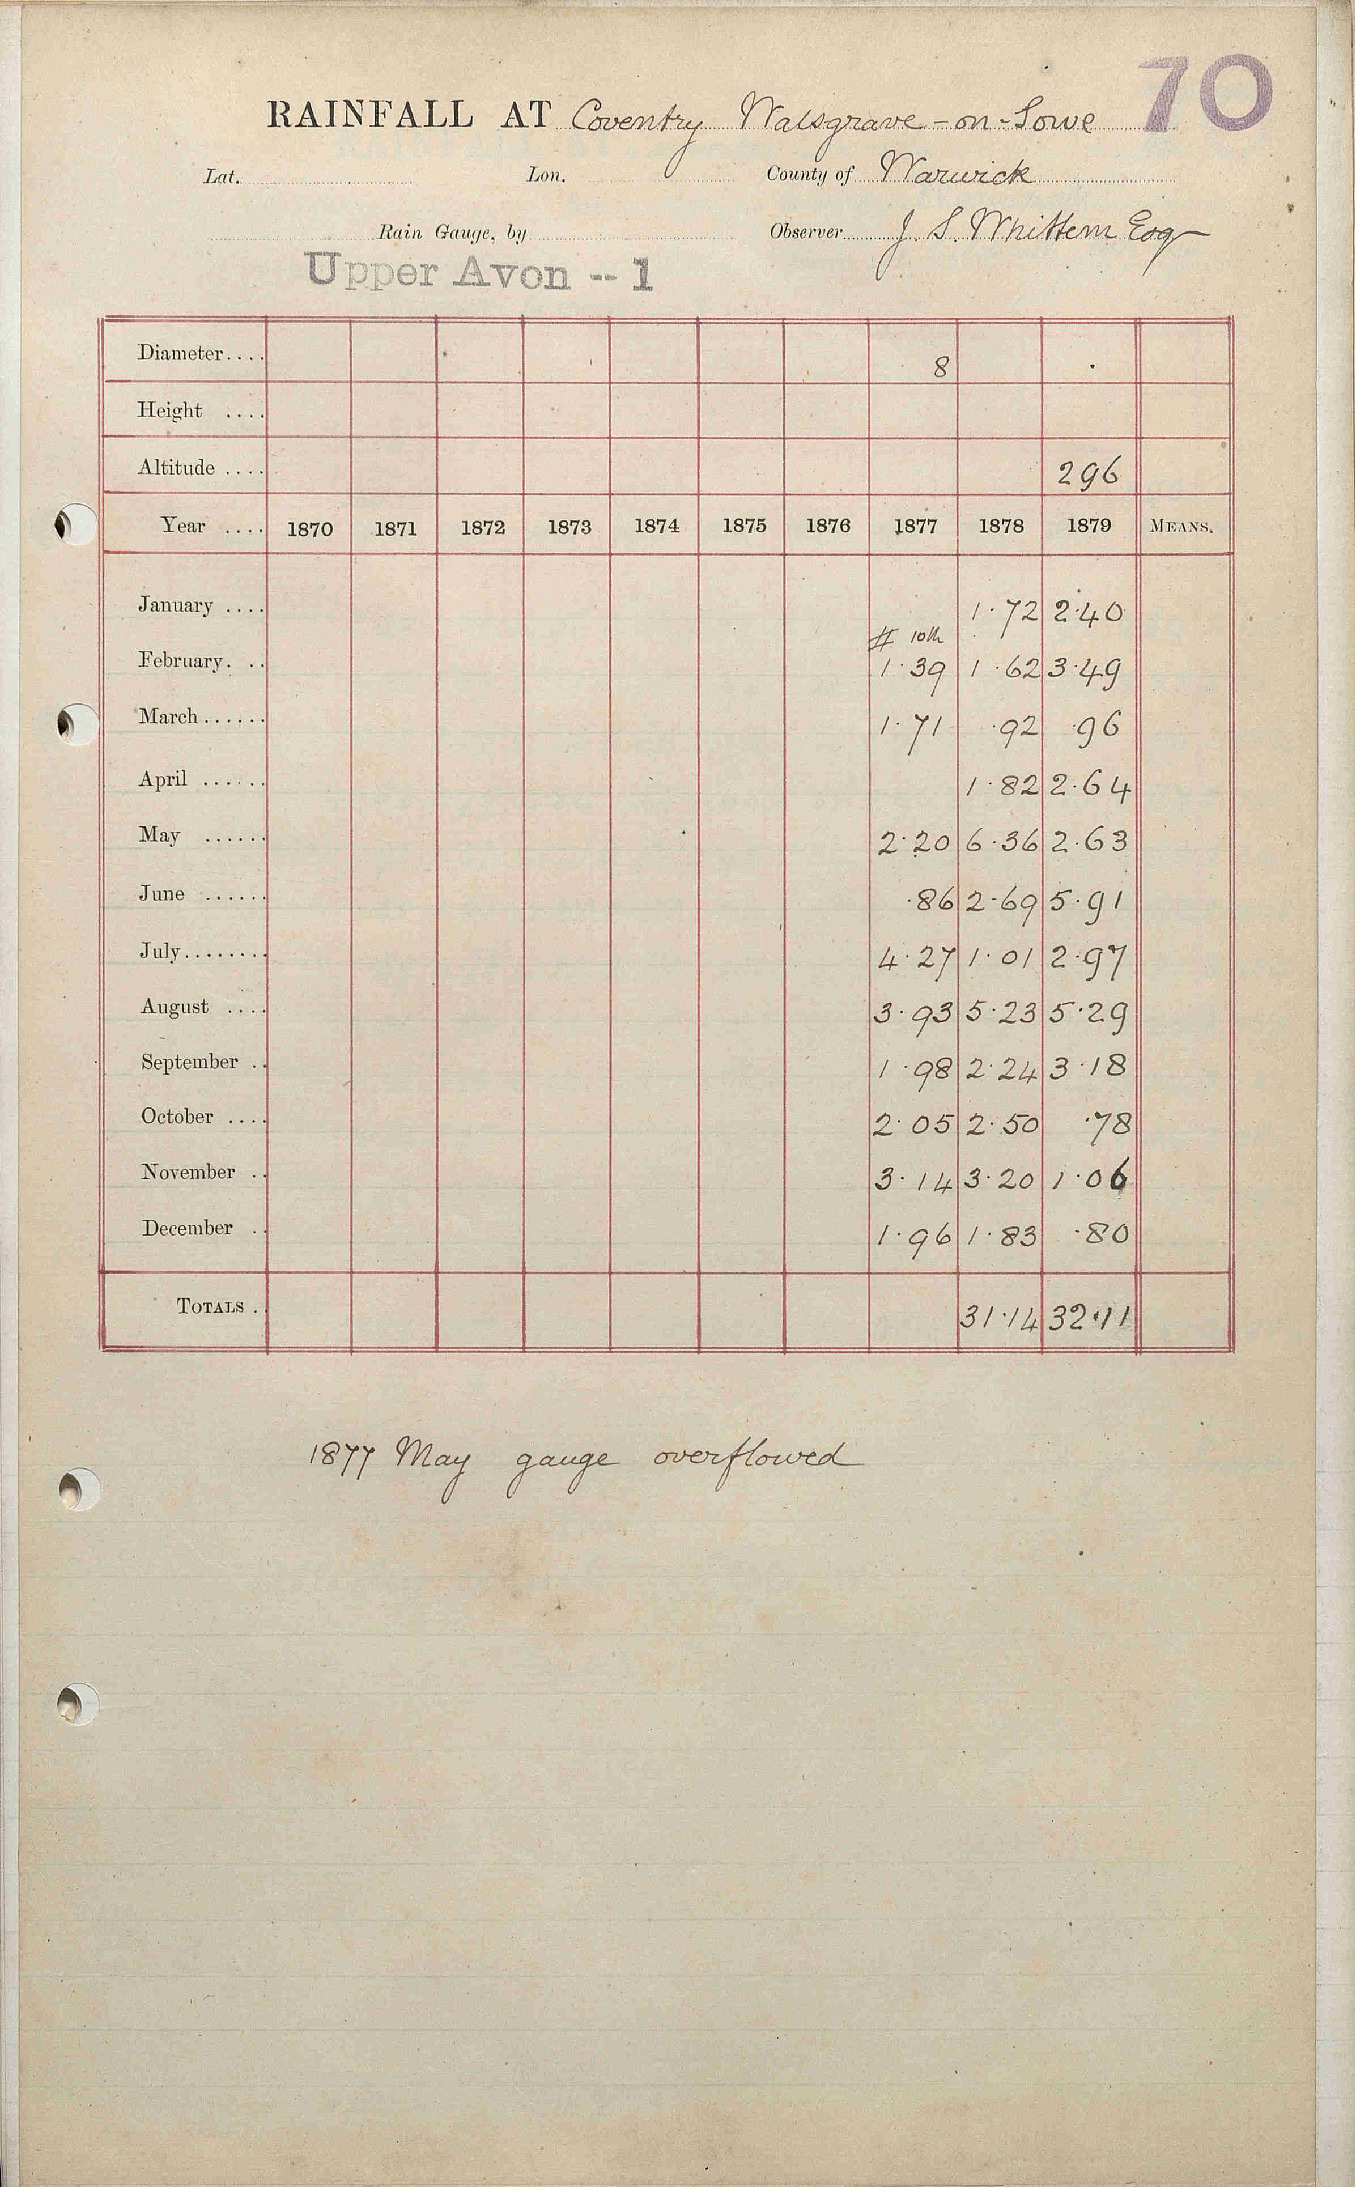 70
RAINFALL AT Coventry Walsgrave-on-Sowe
Lat. Lon. County of Warwick
Rain Gauge, by Observer J. S. Whittem Esq
Upper Avon -- 1
Diameter.... 8
Height ....
Altitude .... 296
Year .... 1870 1871 1872 1873 1874 1875 1876 1877 1878 1879 MEANS.
January .... 1.72 2.40
# 10th
February. .. 1.39 1.62 3.49
March...... 1.71 .92 .96
April ...... 1.82 2.64
May ...... 2.20 6.36 2.63
June ...... .86 2.69 5.91
July........ 4.27 1.01 2.97
August .... 3.93 5.23 5.29
September .. 1.98 2.24 3.18
October .... 2.05 2.50 .78
November .. 3.14 3.20 1.06
December .. 1.96 1.83 .80
TOTALS .. 31.14 32.11
1877 May gauge overflowed